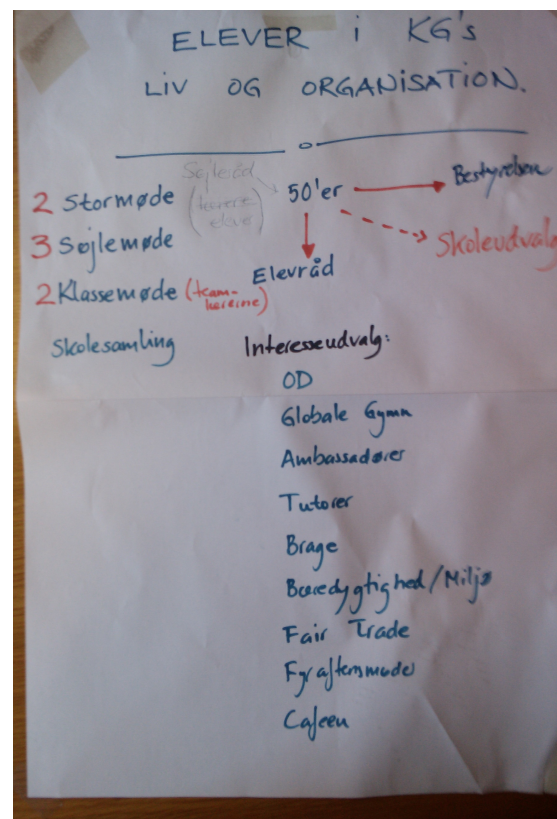 ELEVER i KG's
LIV OG ORGANISATION.
Søjleråd
(lærere
elever)
2 Stormøde
3 Søjlemøde
2 Klassemøde (team-
lærerne)
Skolesamling
50'er
Bestyrelsen
Skoleudvalg
Elevråd
Interesseudvalg:
OD
Globale Gymn
Ambassadører
Tutorer
Brage
Bæredygtighed/Miljø
Fair Trade
Fyraftensmøder
Cafeen